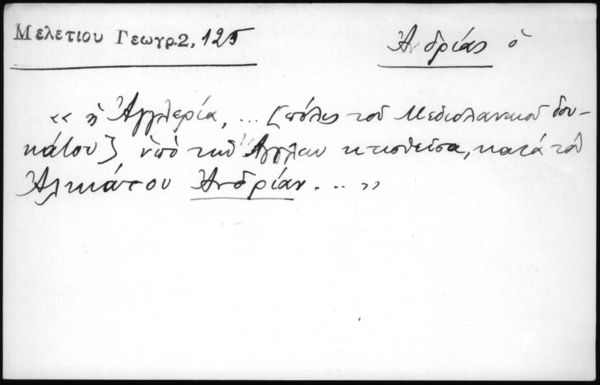 Μελετίου Γεωγρ. 2, 125
Ἀνδρίας ὁ
« ἡ Ἀγγλερία, ... [πόλις τοῦ Μεδιολανικοῦ δου-
κάτου], ὑπὸ τοῦ Ἄγγλου κτισθεῖσα, κατὰ τὸν
Ἀλικάτου Ἀνδρίαν ... »